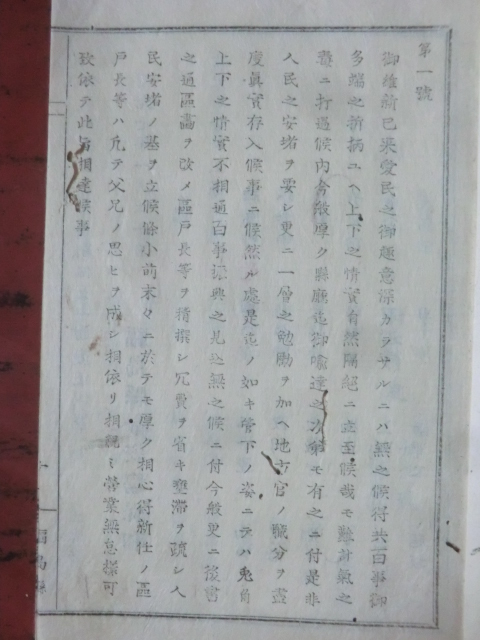 第一號
御維新已来愛民之御趣意深カラサルニハ無之候得共百事御
多端之折柄ニヘ上下之情實自然隔絶ニ立至候哉モ難計氣之
毒ニ打過候内今般厚ク縣廳迄御喩達之次第モ有之ニ付是非
人民之安堵ヲ要シ更ニ一層之勉勵ヲ加ヘ地方官ノ職分ヲ盡
度眞實存入候事ニ候然ル處是迄ノ如キ管下ノ姿ニテハ兎角
上下之情實不相通百事振興之見込無之候ニ付今般更ニ後書
之通區畫ヲ改メ區戸長等ヲ精撰シ冗費ヲ省キ壅滞ヲ疏シ人
民安堵ノ基ヲ立候條小前末々ニ於テモ厚ク相心得新任ノ區
戸長等ハ凢テ父兄ノ思ヒヲ成シ相依リ相親ミ営業無怠様可
致依テ此旨相達候事